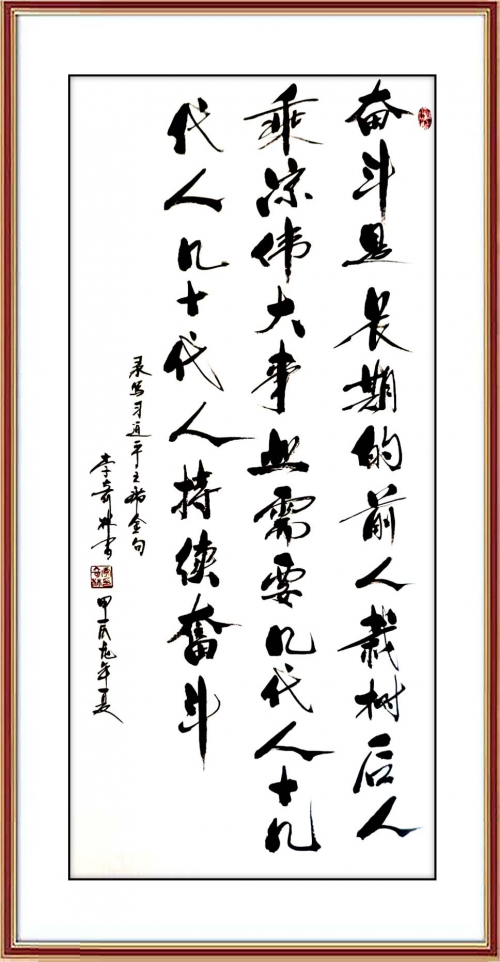 奋斗是长期的前人栽树后人
乘凉伟大事业需要几代人十几
代人几十代人持续奋斗
录写习近平主席金句
李奇林书 甲辰龙年夏